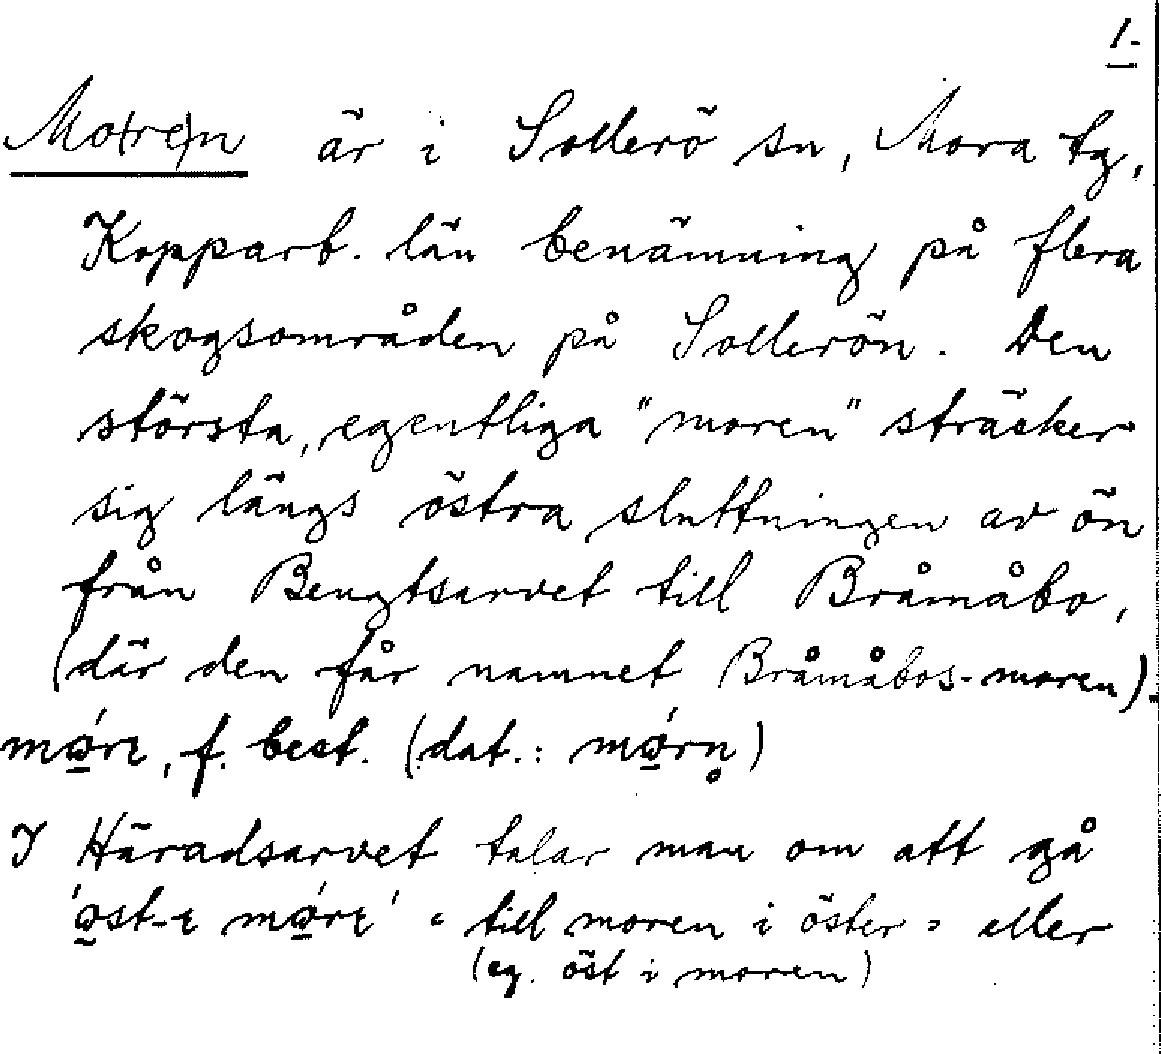 1.
Mo(re)n är i Sollerö sn, Mora tg,
Kopparb. län benämning på flera
skogsområden på Sollerön. Den
största, egentliga "moren" sträcker
sig längs östra sluttningen av ön
från Bengtsarvet till Bråmåbo,
(där den får namnet Bråmåbos-moren).
f. best. (dat.:
I Häradsarvet talar man om att gå
till moren i öster, eller
(eg. öst i moren)